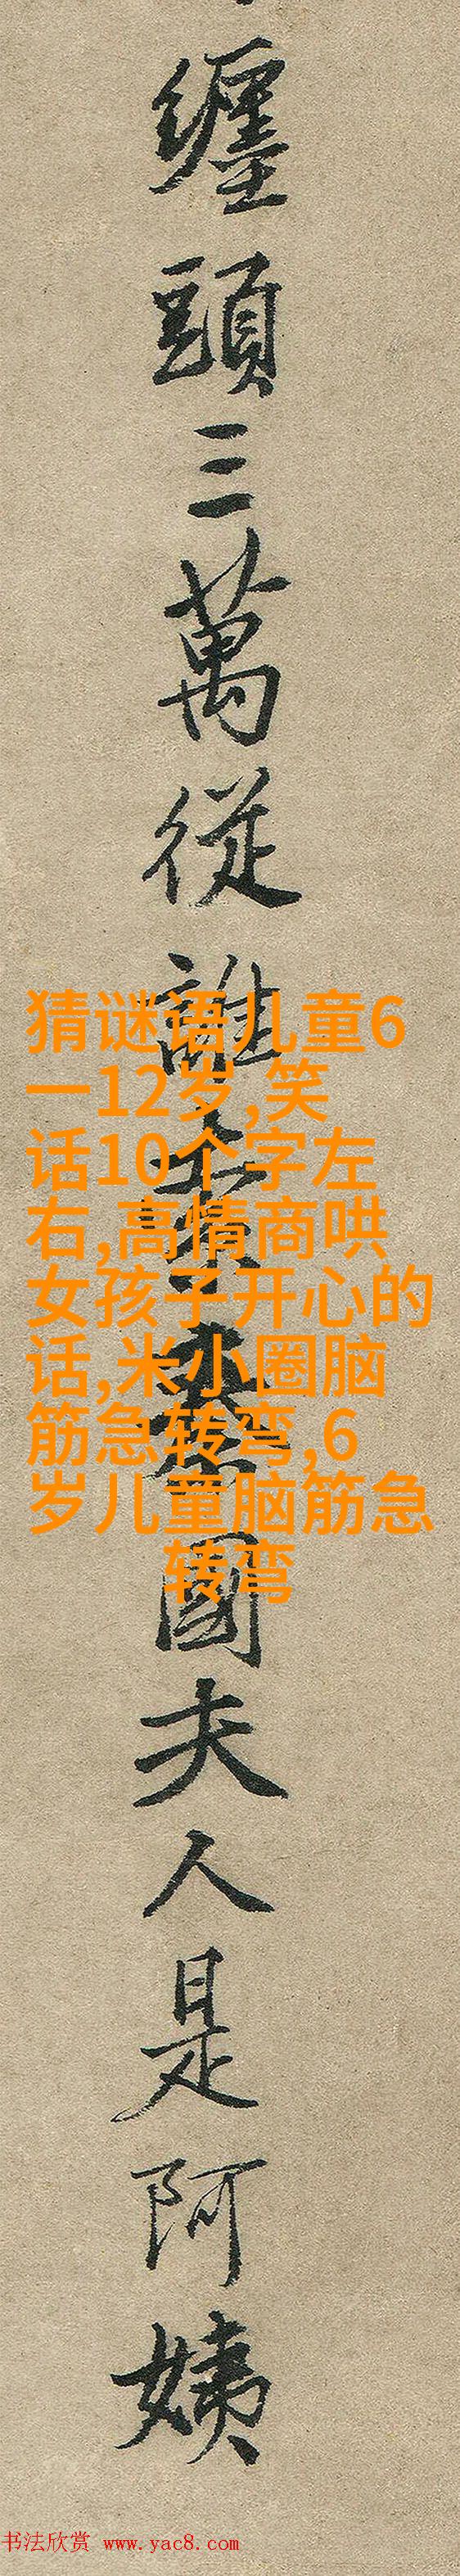 纏頭三萬從誰國夫人是阿姨
猜谜语儿童6
一12岁,笑
话10个字左
右,高情商哄
女孩子开心的
话,米小圈脑
筋急转弯,6
岁儿童脑筋急
转弯
书法欣赏 www.yac8.com